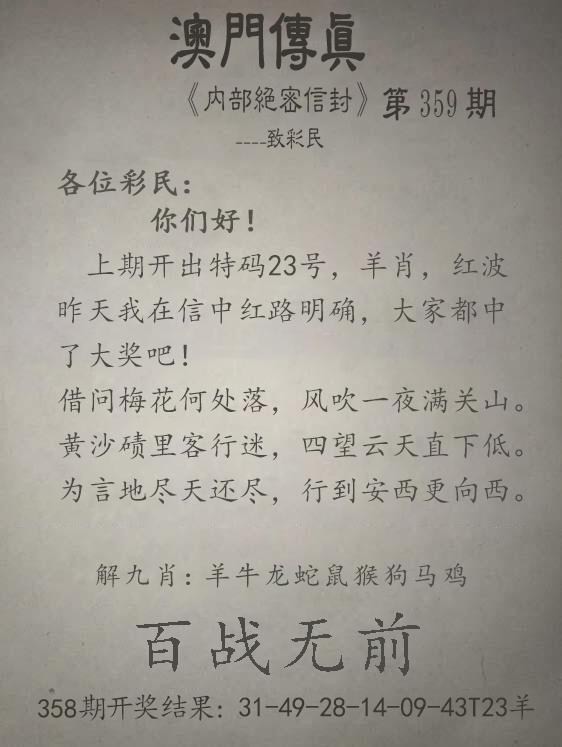 澳門傳眞
《内部絕密信封》第359期
----致彩民
各位彩民：
你们好！
上期开出特码23号，羊肖，红波
昨天我在信中红路明确，大家都中
了大奖吧！
借问梅花何处落，风吹一夜满关山。
黄沙碛里客行迷，四望云天直下低。
为言地尽天还尽，行到安西更向西。
解九肖：羊牛龙蛇鼠猴狗马鸡
百战无前
358期开奖结果：31-49-28-14-09-43T23羊